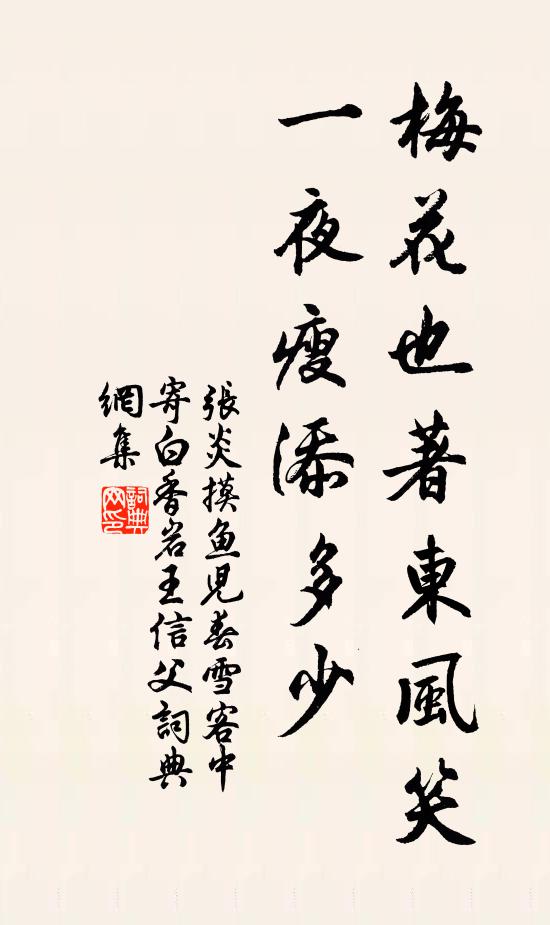 梅花也著東風笑
一夜瘦添多少
張炎摸魚児春雪客中
寄白香岩王信父詞典
網集
詞典網印